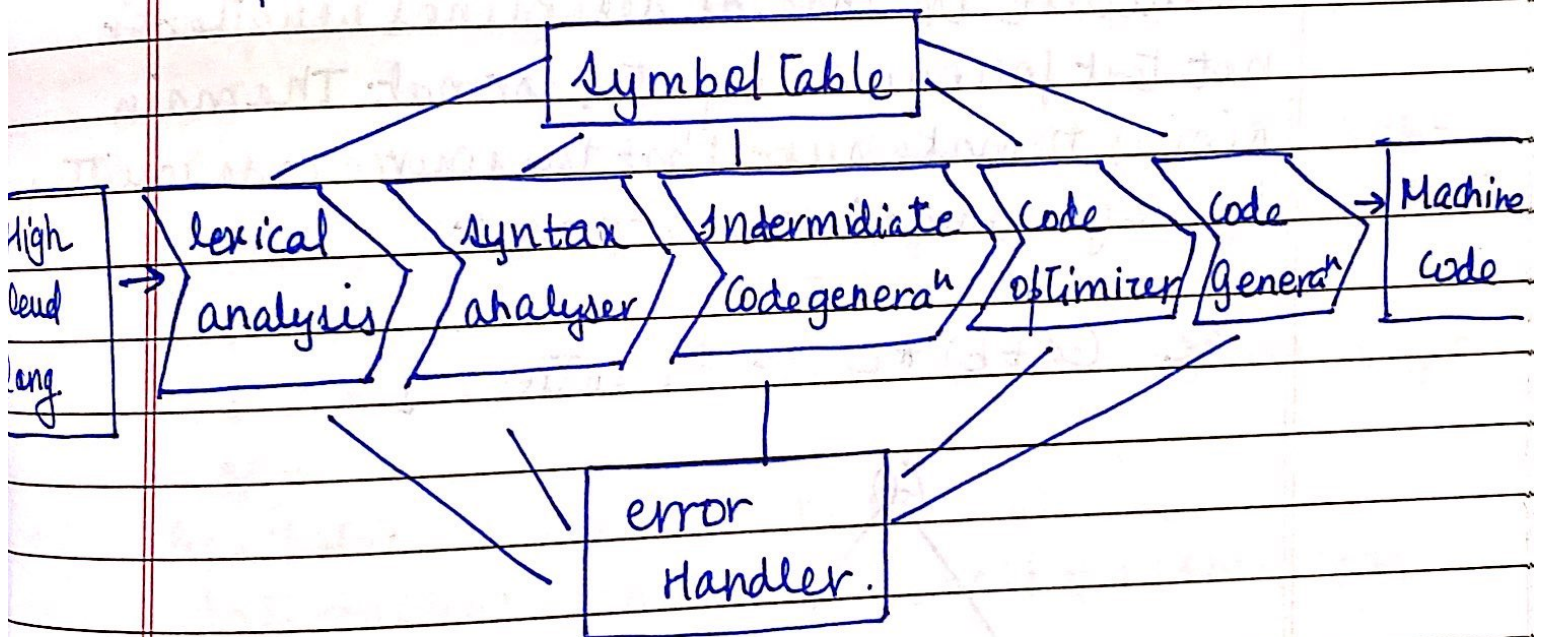 Symbol Table
High
level
lang.
lexical
analysis
syntax
analyser
Indermidiate
Codegeneraⁿ
Code
optimizer
Code
generaⁿ
Machine
Code
error
Handler.